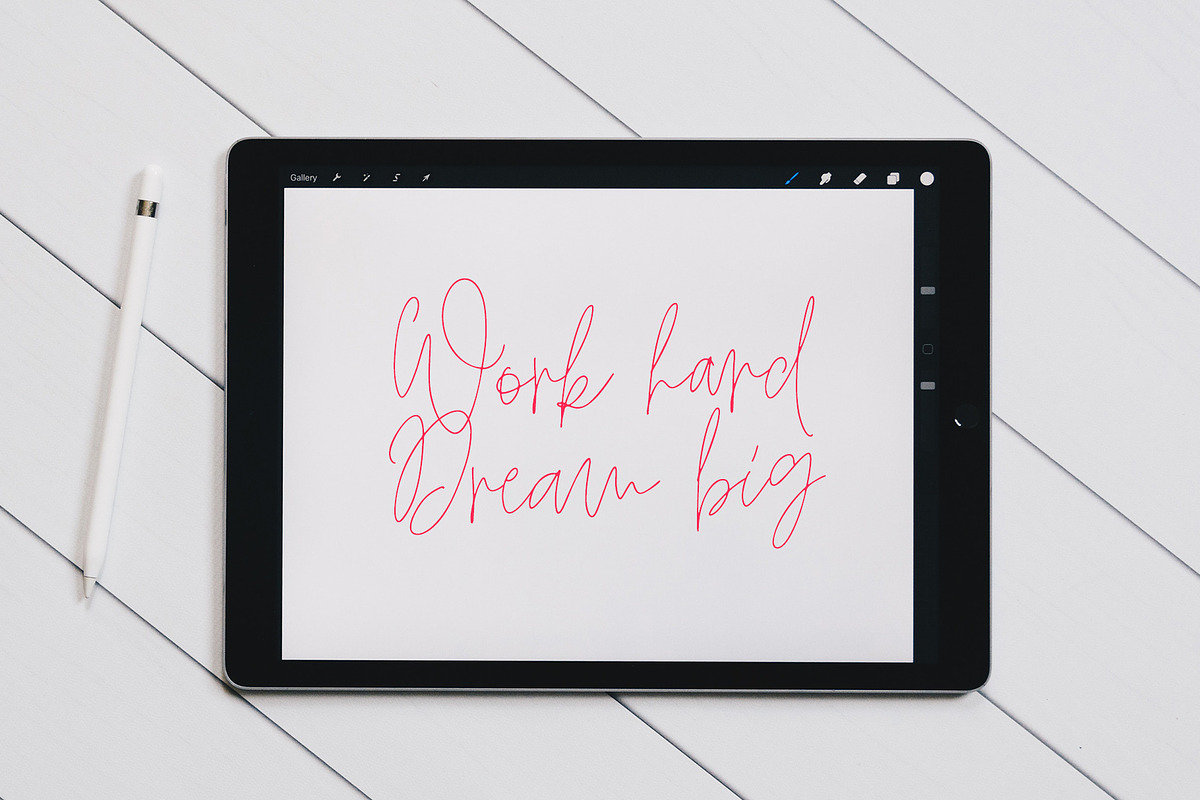 Gallery
Work hard
Dream big